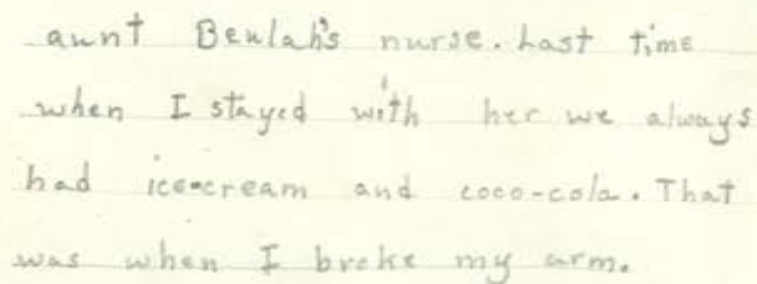 aunt Beulah's nurse. Last time
when I stayed with her we always
had ice-cream and coco-cola. That
was when I broke my arm.